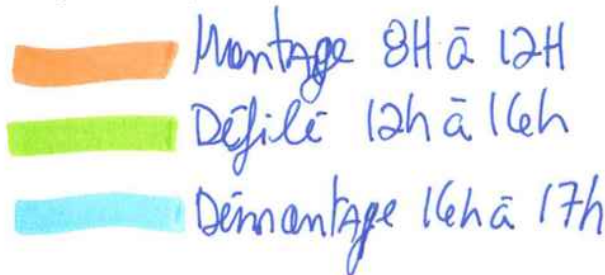 Montage 8H à 12H
Défilé 12h à 16h
Démontage 16h à 17h